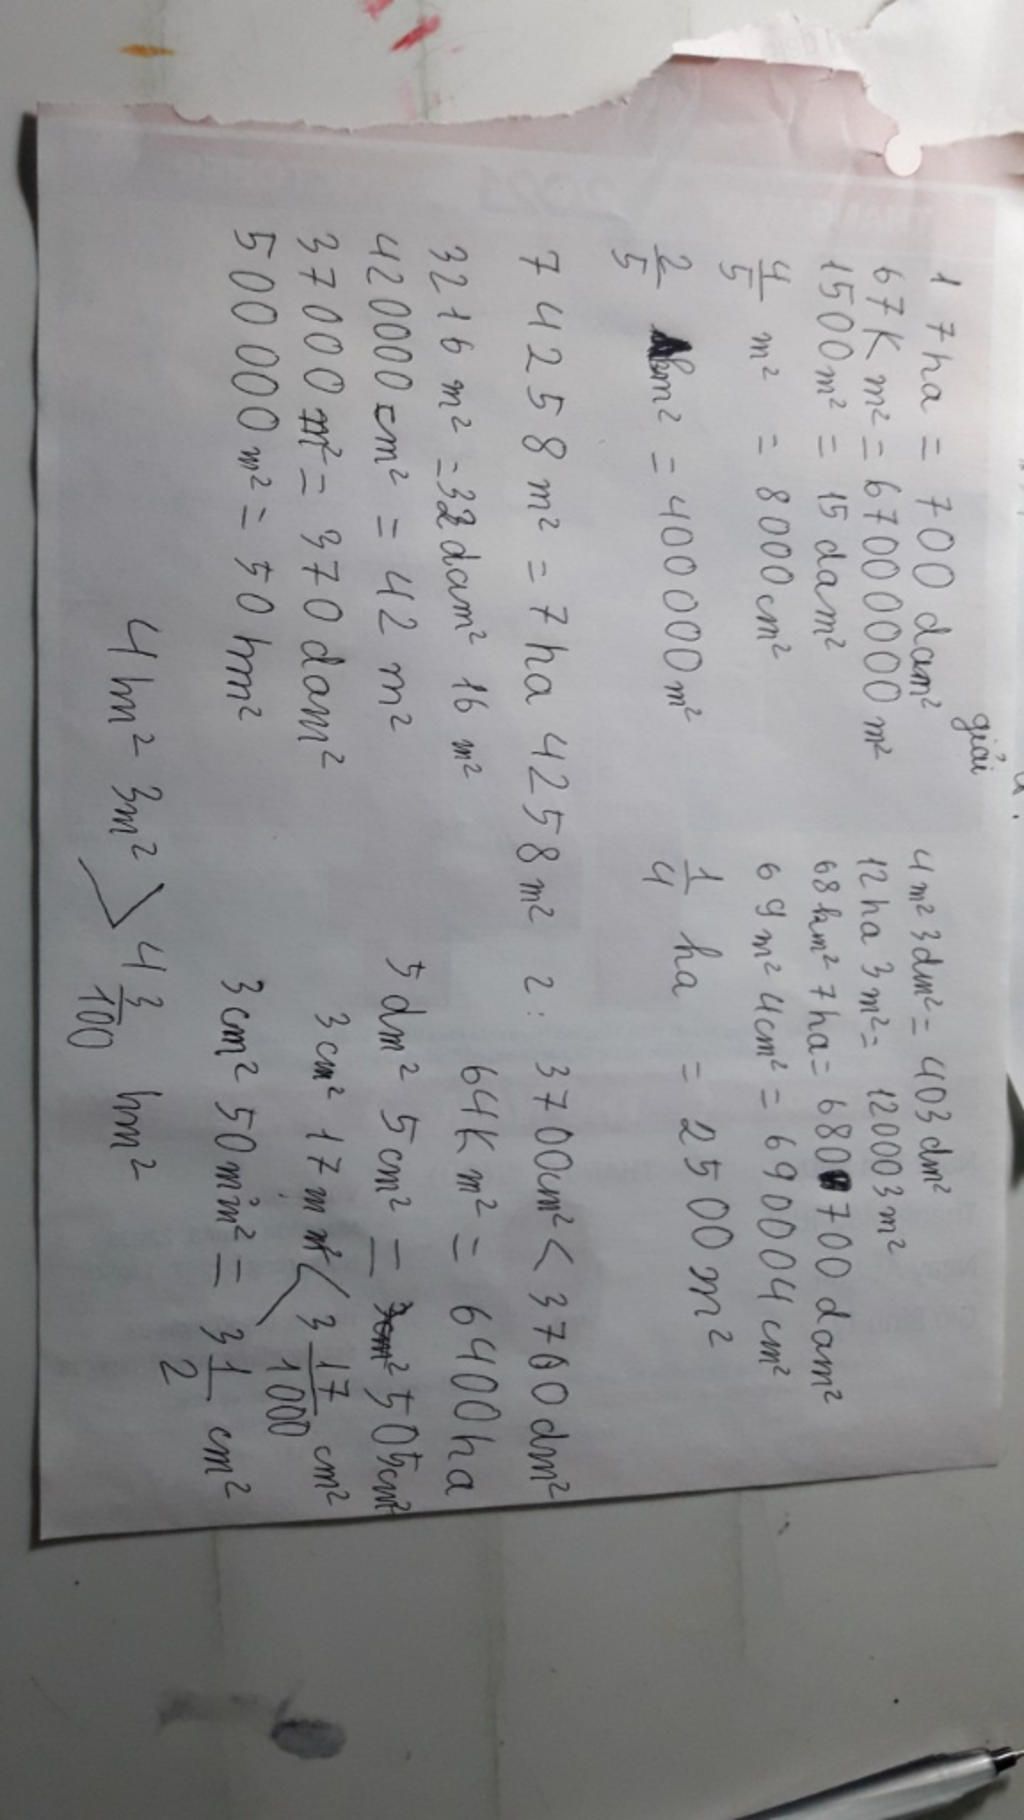 giải
1 7ha = 700 dam²
67Km² = 67000000 m²
1500m² = 15 dam²
4/5 m² = 8000cm²
2/5 km² = 400000m²
4m² 3dm² = 403 dm²
12ha 3m² = 120003m²
68km² 7ha = 680700 dam²
69m² 4cm² = 690004cm²
1/4 ha = 2500m²
74258m² = 7ha 4258m²
3216m² = 32dam² 16m²
420000cm² = 42m²
37000m² = 370dam²
500000m² = 50hm²
2: 3700cm² < 3700dm²
64Km² = 6400ha
5dm² 5cm² = 505cm²
3cm² 17mm² < 3 17/1000 cm²
3cm² 50mm² = 3 1/2 cm²
4hm² 3m² > 4 3/100 hm²